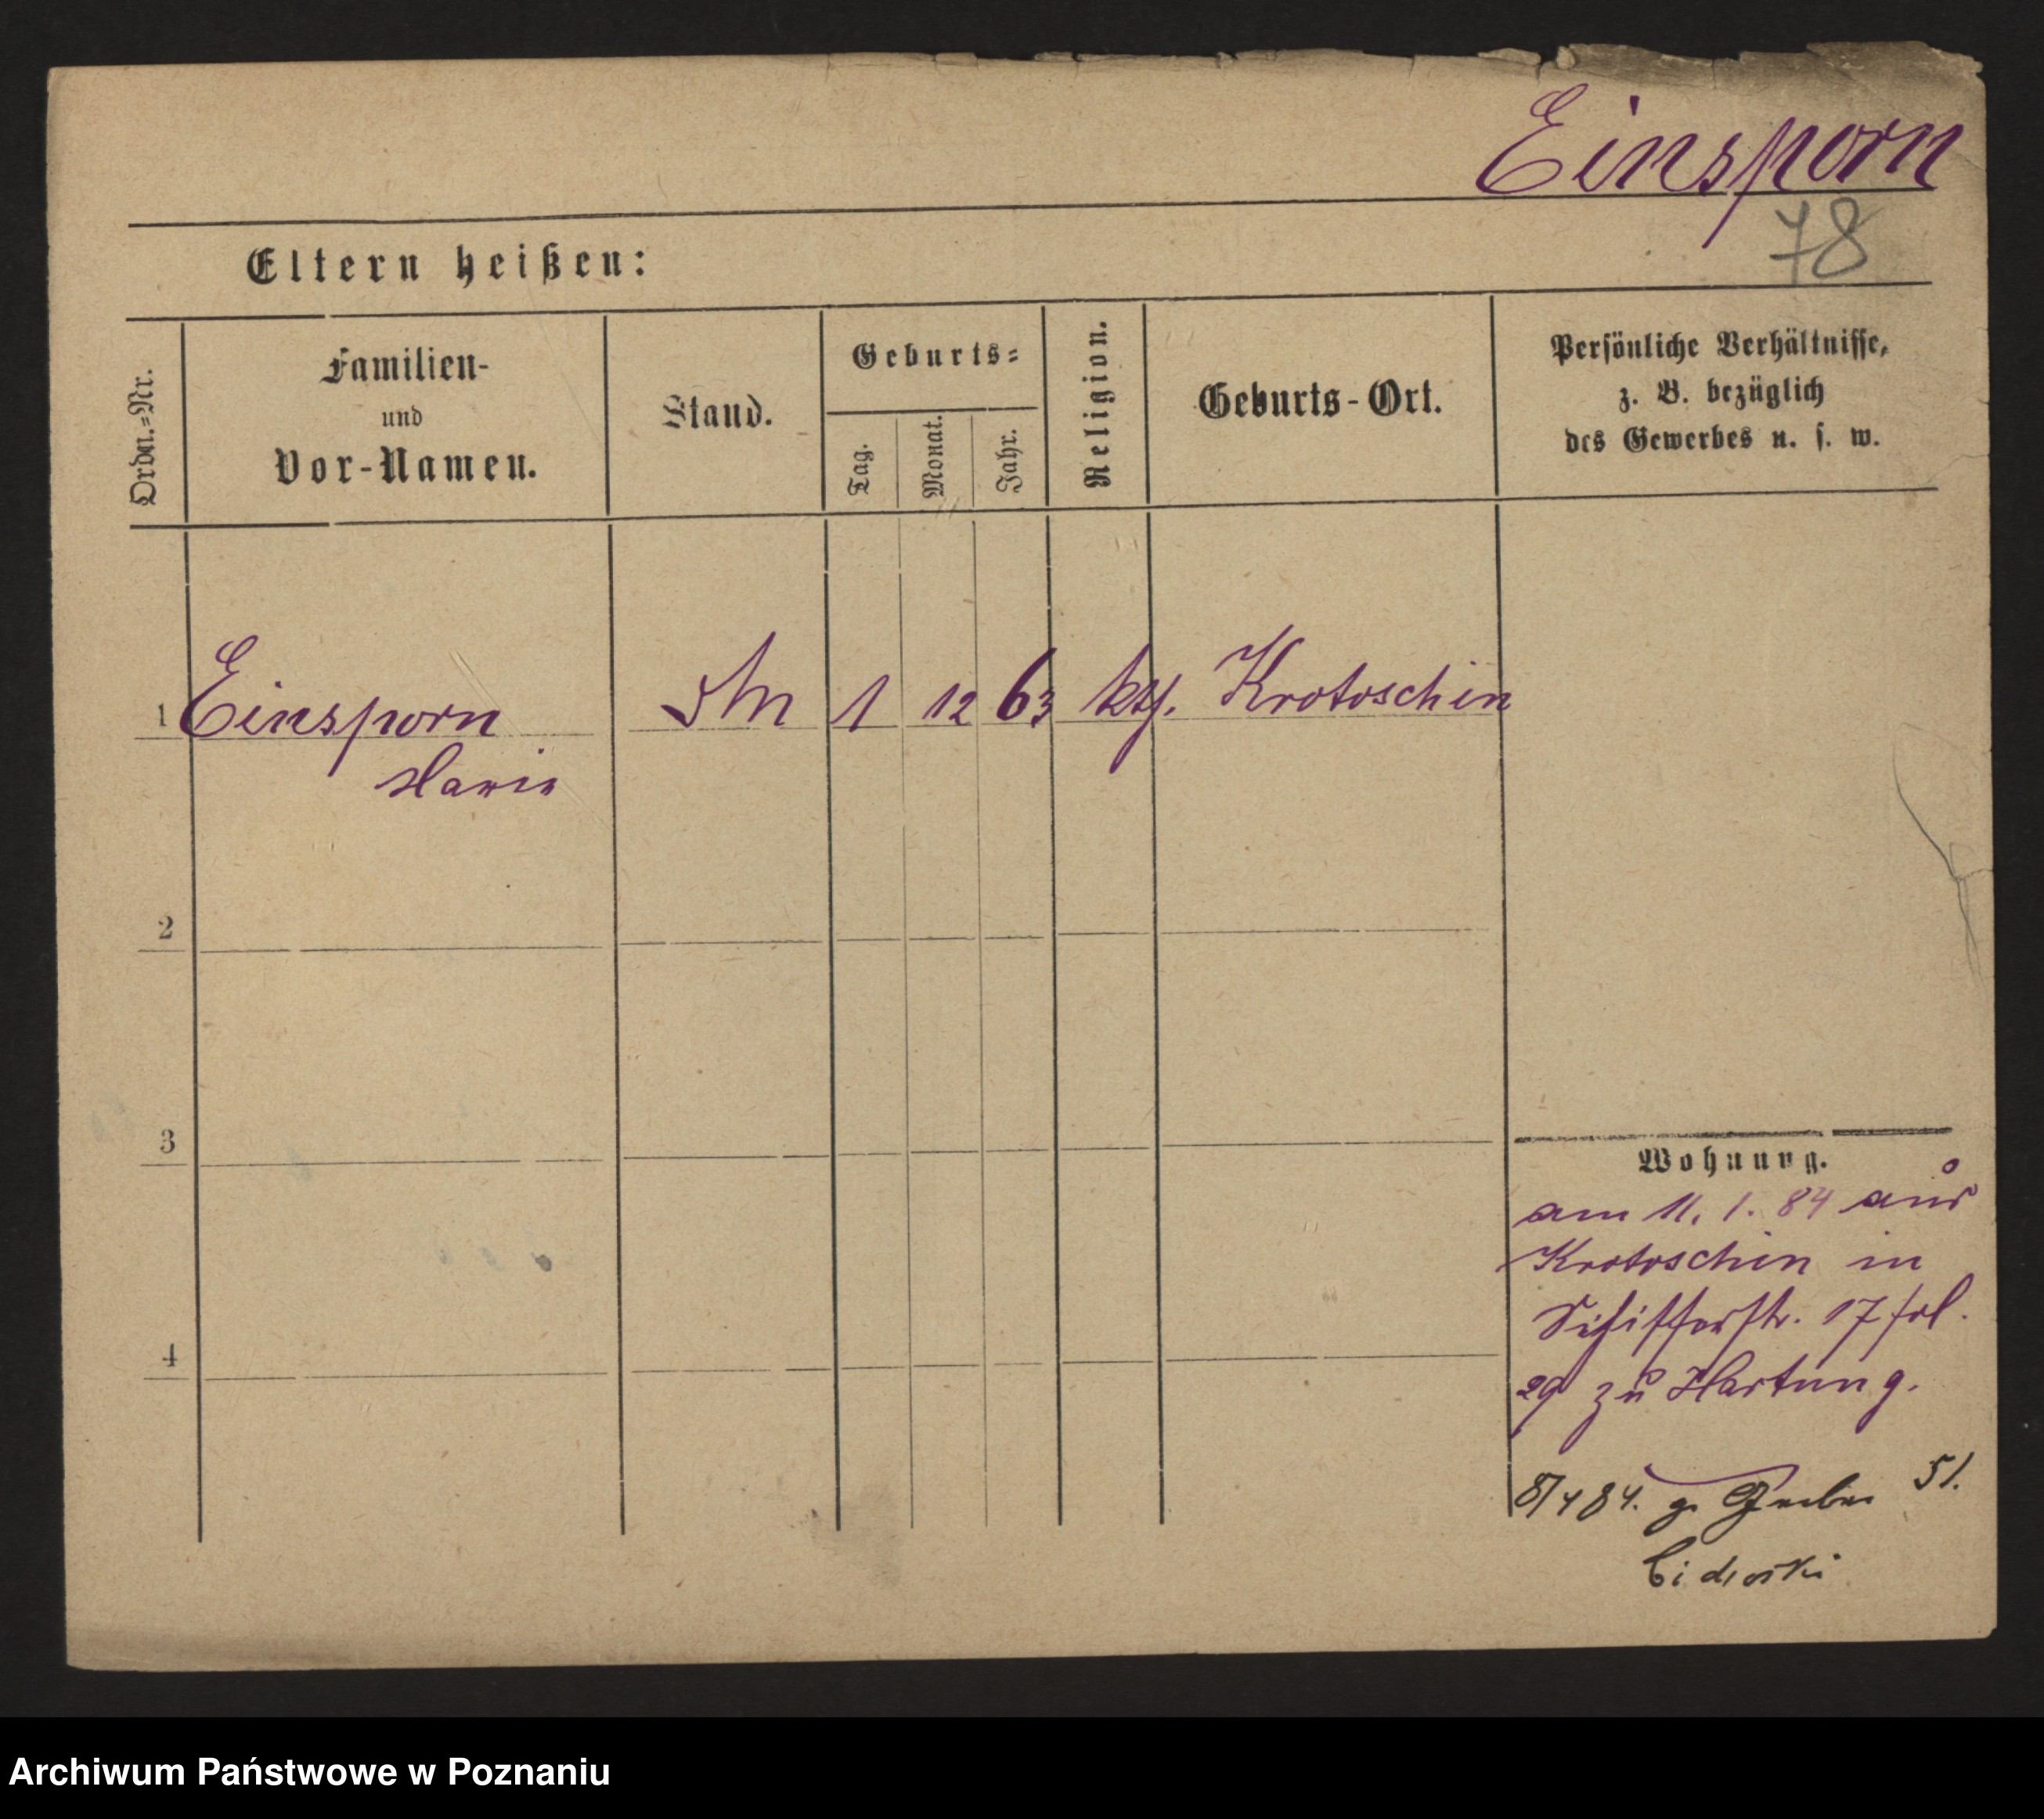 Einsporn
78
Eltern heißen:
Ordn.=Nr.
Familien- und Vor-Namen.
Stand.
Geburts=
Tag.
Monat.
Jahr.
Religion.
Geburts-Ort.
Persönliche Verhältnisse,
z. B. bezüglich
des Gewerbes u. s. w.
1 Einsporn 1 12 63 kth. Krotoschin
Marie
2
3
4
Wohnung.
am 11. 1. 84 aus
Krotoschin in
Schifferstr. 17 fol.
29 zu Hartung.
8/4 84. Gerber 51.
Archiwum Państwowe w Poznaniu